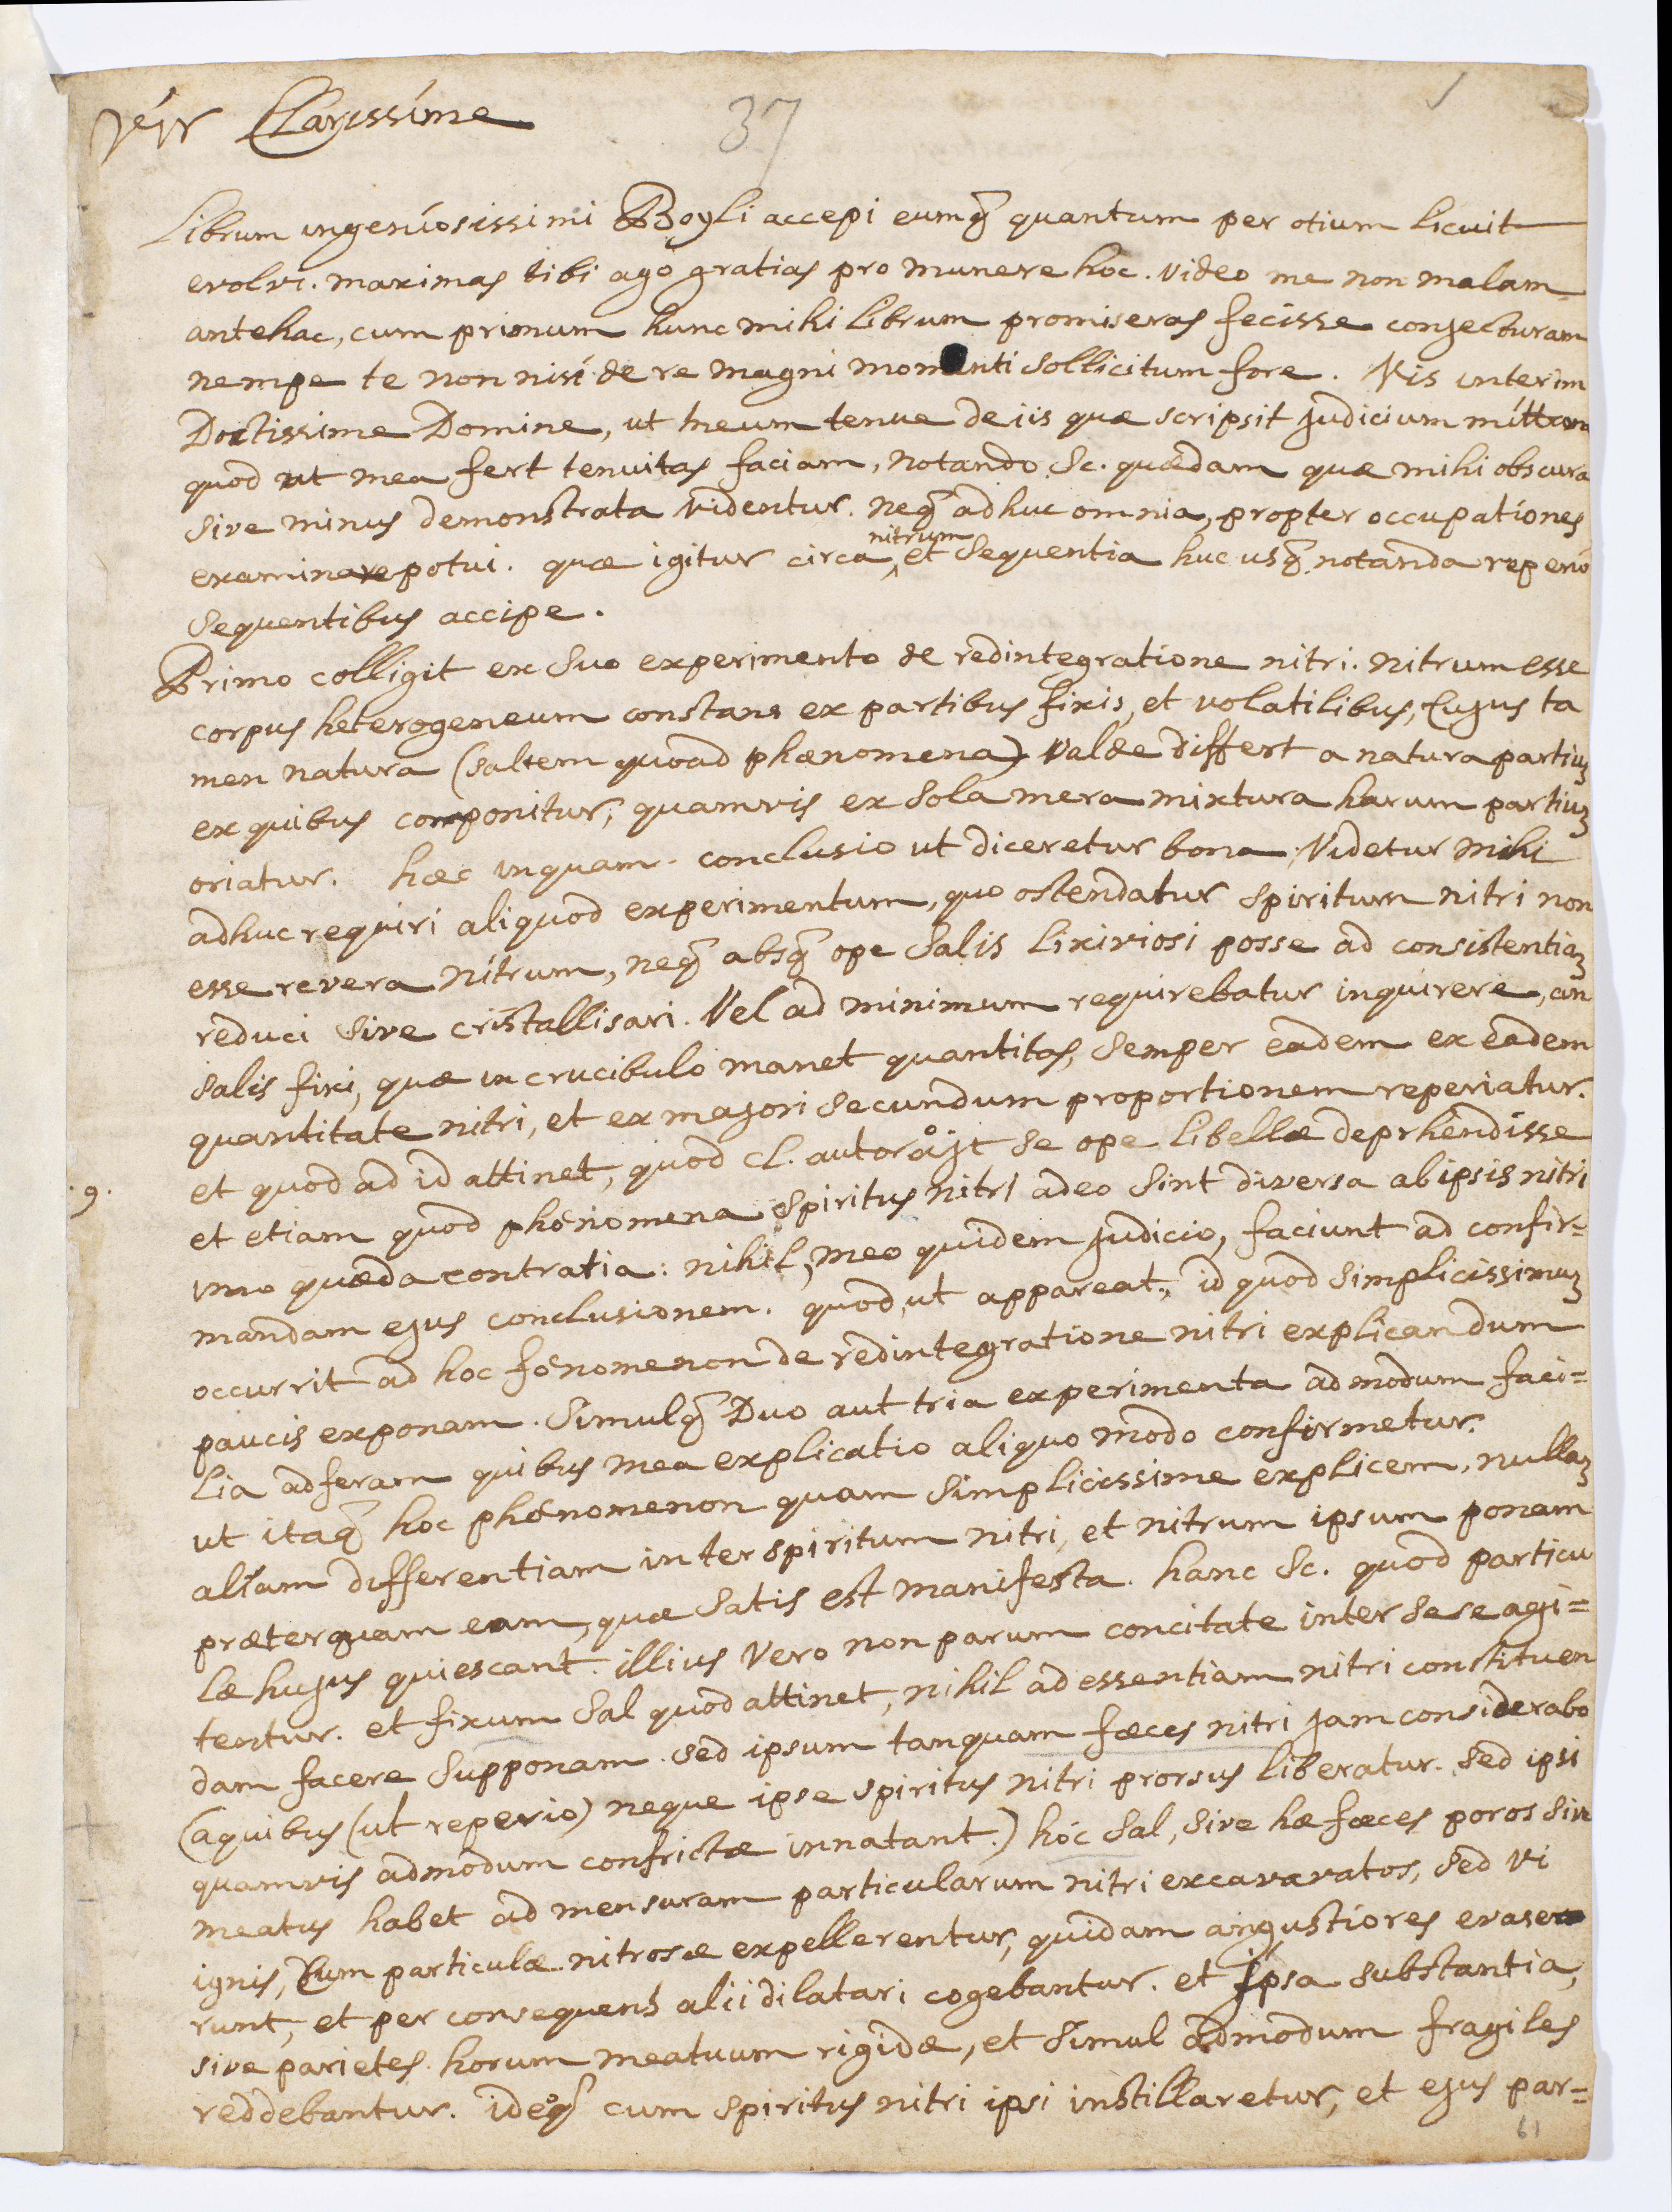 37
Vir Clarissime
Librum ingeniosissimi Boyli accepi eumq quantum per otium licuit
evolvi. maximas tibi ago gratias pro munere hoc. video me non malam
antehac, cum primum hunc mihi librum promiseras fecisse conjecturam
nempe te non nisi de re magni momenti sollicitum fore. Vis interim
Doctissime Domine, ut meum tenue de iis quæ scripsit judicium mittam
quod ut mea fert tenuitas faciam, notando Sc. quædam quæ mihi obscura
sive minus demonstrata videntur. neq adhuc omnia, propter occupationes
examinare potui. quæ igitur circa nitrum et sequentia huc usq notanda reperio
sequentibus accipe.
Primo colligit ex suo experimento de redintegratione nitri. nitrum esse
corpus heterogeneum constans ex partibus fixis, et volatilibus, Cujus ta
men natura (saltem quoad phænomena) valde differt a natura partiuz
ex quibus componitur, quamvis ex sola mera mixtura harum partiuz
oriatur. hæc inquam conclusio ut diceretur bona. Videtur mihi
adhuc requiri aliquod experimentum, quo ostendatur spiritum nitri non
esse revera nitrum, neq absq ope salis lixiviosi posse ad consistentiaz
reduci sive cristallisari. Vel ad minimum requirebatur inquirere, an
salis fixi, quæ in crucibulo manet quantitas, semper eadem ex eadem
quantitate nitri, et ex majori secundum proportionem reperiatur.
et quod ad id attinet, quod Cl. autor ajt se ope libellæ deprhendisse
. 9 .
et etiam quod phœnomena spiritus nitri adeo sint diversa ab ipsis nitri
imo quæda contratia: nihil, meo quidem judicio, faciunt ad confir=
mandam ejus conclusionem. quod, ut appareat, id quod simplicissimuz
occurrit ad hoc fœnomenon de redintegratione nitri explicandum
paucis exponam. Simulq Duo aut tria experimenta admodum faci=
lia adferam quibus mea explicatio aliquo modo confirmetur.
ut itaq hoc phœnomenon quam simplicissime explicem, nullaz
aliam differentiam inter spiritum nitri, et nitrum ipsum ponam
præterquam eam, quæ satis est manifesta. hanc Sc. quod particu
læ hujus quiescant. illius vero non parum concitate inter sese agi=
tentur. et fixum sal quod attinet, nihil ad essentiam nitri constituen
dam facere supponam. sed ipsum tanquam fæces nitri jam considerabo
(a quibus (ut reperio) neque ipse spiritus nitri prorsus liberatur. sed ipsi
quamvis admodum confrictæ innatant.) hoc sal, sive hæ fæces poros sive
meatus habet ad mensuram particularum nitri excavavatos, sed vi
ignis, Cum particulæ nitrosæ expellerentur, quidam angustiores evase
runt, et per consequens alii dilatari cogebantur. et ipsa substantia,
sive parietes horum meatuum rigidæ, et simul admodum fragiles
reddebantur. ideoq cum spiritus nitri ipsi instillaretur, et ejus par=
61